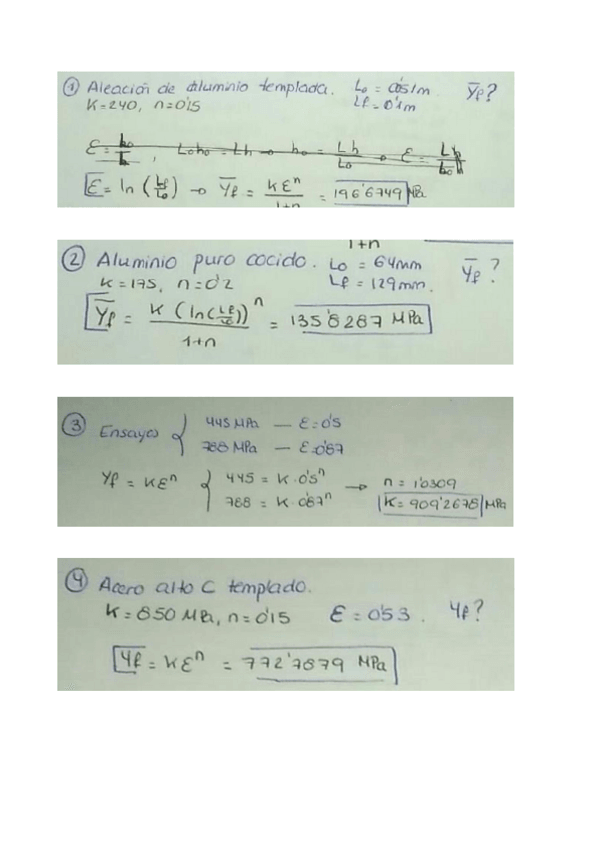 ① Aleación de aluminio templada. Lo = 0'051m Ȳf?
K=240, n=0'15 Lf=0'1m
ε = ho/h , Loho = Lh → ho = Lh/Lo → ε = Lh/Lo h
ε = ln (Lf/Lo) → Ȳf = Kεⁿ/1+n = 196'6749 MPa
1+n
② Aluminio puro cocido. Lo = 64mm Ȳf?
K=175, n=0'2 Lf = 129mm.
Ȳf = K (ln(Lf/Lo))ⁿ/1+n = 135'8287 MPa
③ Ensayos { 445 MPa — ε=0'5
788 MPa — ε=0'87
Yf = Kεⁿ { 445 = K·0'5ⁿ → n = 1'0309
788 = K·0'87ⁿ K = 909'2678 MPa
④ Acero alto C templado.
K=850 MPa, n=0'15 ε=0'53. Yf?
Yf = Kεⁿ = 772'7879 MPa